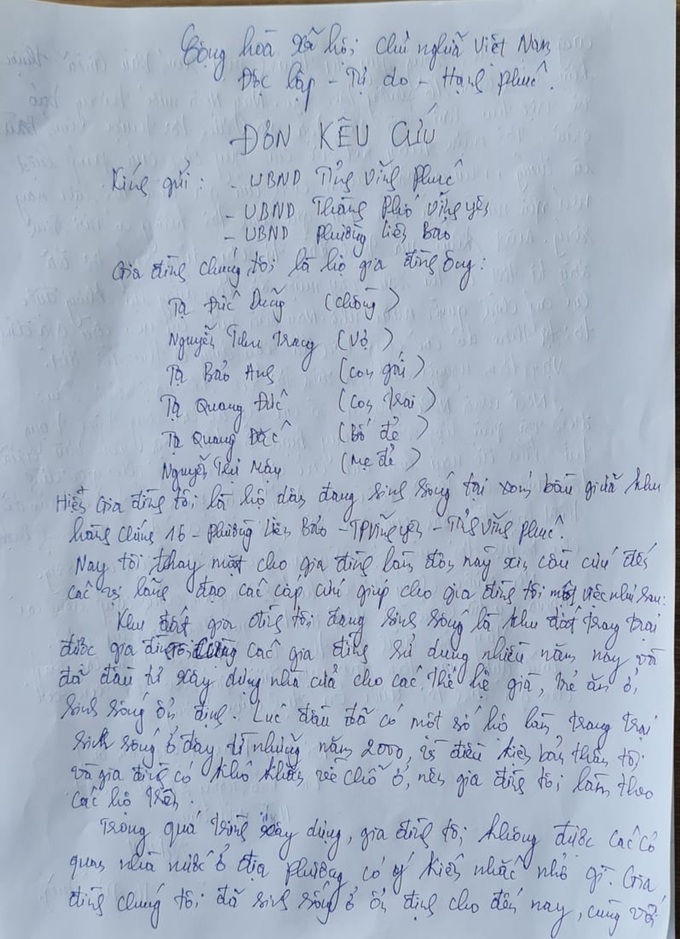 Cộng hoà xã hội chủ nghĩa Việt Nam
Độc lập - Tự do - Hạnh phúc.
ĐƠN KÊU CỨU
Kính gửi: - UBND Tỉnh Vĩnh Phúc
- UBND Thành Phố Vĩnh yên
- UBND phường Liên Bảo
Gia đình chúng tôi là hộ gia đình ông:
Tạ Đức Dũng (chồng)
Nguyễn Thu Trang (Vợ)
Tạ Bảo Anh (con gái)
Tạ Quang Đức (con trai)
Tạ Quang (Bố đẻ)
Nguyễn Thị (Mẹ đẻ)
Hiện Gia đình tôi là hộ dân đang sinh sống tại xóm bầu giữa khu
hành chính 16 - phường Liên Bảo - TP Vĩnh yên - Tỉnh Vĩnh phúc.
Nay tôi thay mặt cho gia đình làm đơn này xin cầu cứu đến
các vị lãnh đạo các cấp cứu giúp cho gia đình tôi một việc như sau:
Khu đất gia đình tôi đang sinh sống là khu đất trang trại
được gia đình tôi cùng các gia đình sử dụng nhiều năm nay và
đã đầu tư xây dựng nhà cửa cho các thế hệ già, trẻ ăn ở,
sinh sống ổn định. Lúc đầu đã có một số hộ làm trang trại
sinh sống ở đây từ những năm 2000, vì điều kiện bản thân tôi
và gia đình có khó khăn về chỗ ở, nên gia đình tôi làm theo
các hộ trên.
Trong quá trình xây dựng, gia đình tôi không được các cơ
quan nhà nước ở địa phường có ý kiến nhắc nhở gì. Gia
đình chúng tôi đã sinh sống ở ổn định cho đến nay, cùng với